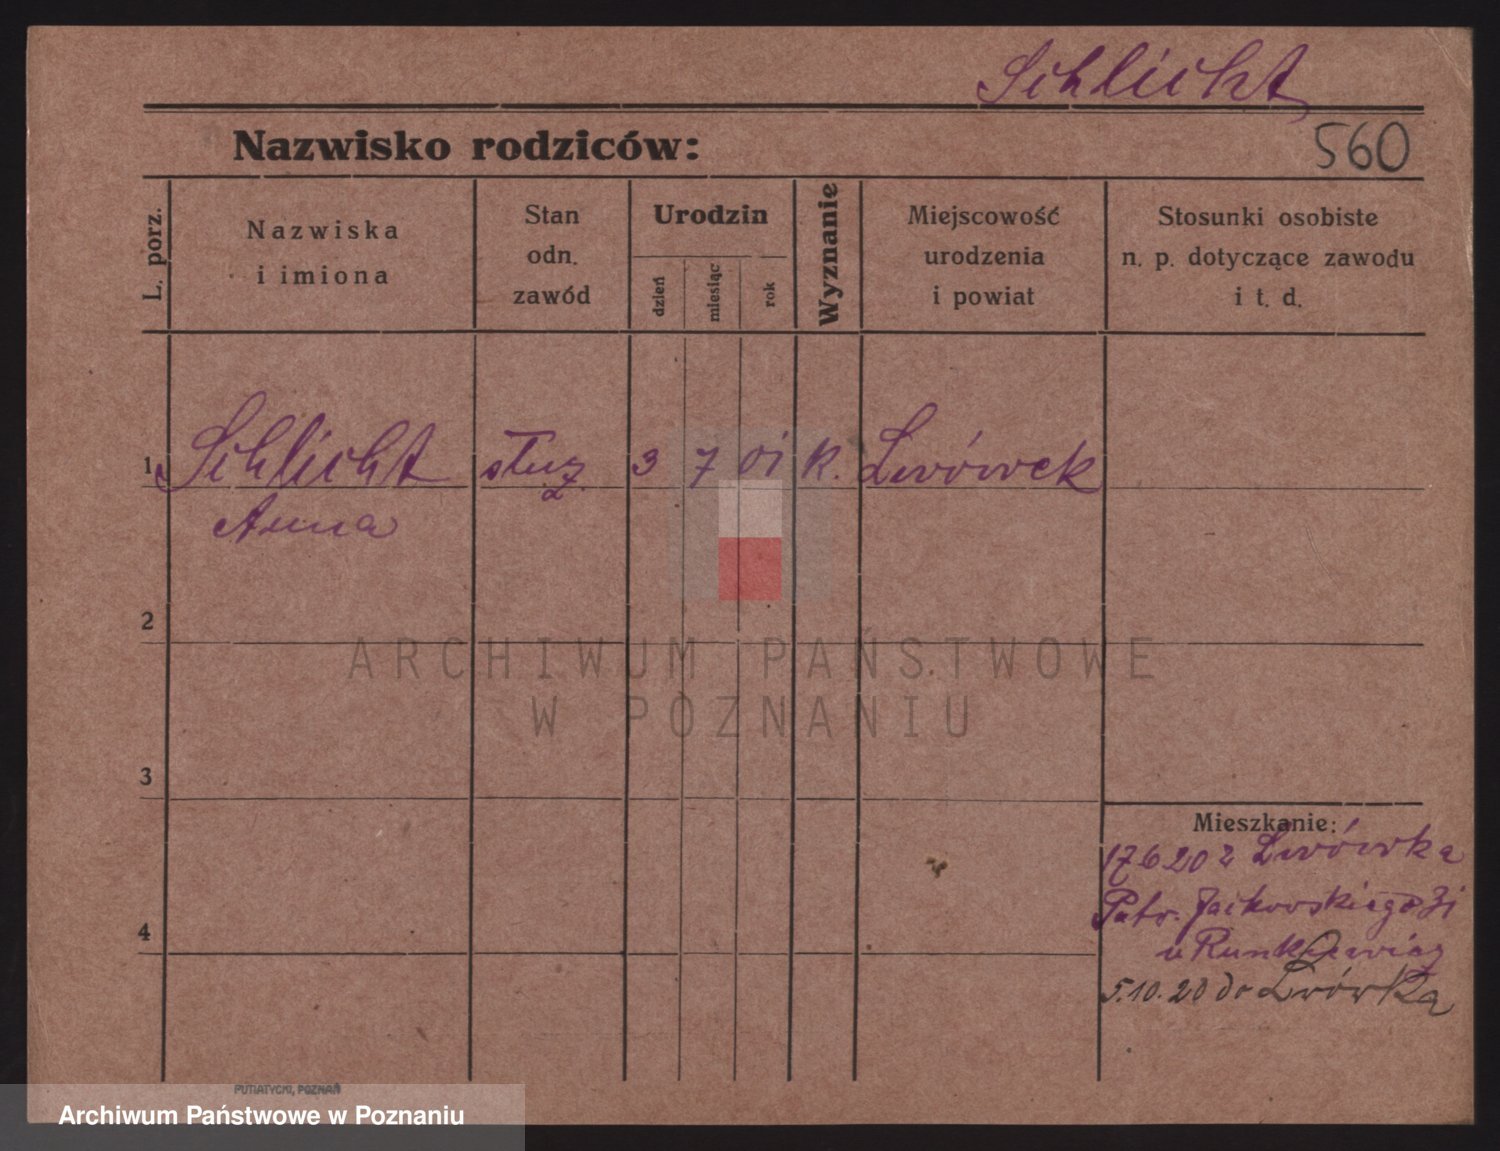 Schlicht
Nazwisko rodziców:
560
L. porz.
Nazwiska
i imiona
Stan
odn.
zawód
Urodzin
dzień
miesiąc
rok
Wyznanie
Miejscowość
urodzenia
i powiat
Stosunki osobiste
n. p. dotyczące zawodu
i t. d.
1 Schlicht służ. 3 7 01 k. Lwówek
Anna
2
3
4
Mieszkanie:
17 6 20 z Lwówka
Patr. Jackowskiego 31
u
5.10.20 do Lwówka
PUTIATYCKI, POZNAŃ
ARCHIWUM PAŃSTWOWE
W POZNANIU
Archiwum Państwowe w Poznaniu